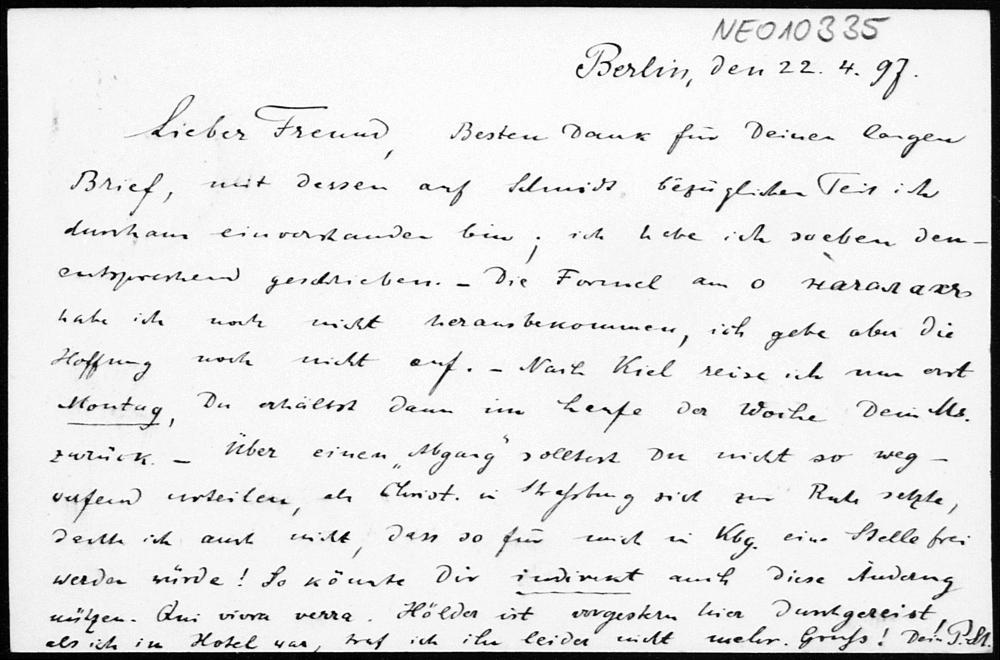 NEO10335
Berlin, den 22. 4. 97.
Lieber Freund, Besten Dank für Deinen langen
Brief, mit dessen auf Schmidt bezüglichen Teil ich
durchaus einverstanden bin; ich habe ich soeben dem-
entsprechend geschrieben. – Die Formel am o
habe ich noch nicht herausbekommen, ich gebe aber die
Hoffnung noch nicht auf. – Nach Kiel reise ich nun erst
Montag, Du erhältst dann im Laufe der Woche Dein Ms.
zurück. – Über einen „Abgang" solltest Du nicht so weg-
werfend urteilen, als Christ. in Straßburg sich zur Ruhe setzte,
dachte ich auch nicht, dass so für mich in Kbg. eine Stelle frei
werden würde! So könnte Dir indirect auch diese Änderung
nützen. Qui vivra verra. Hölder ist vorgestern hier durchgereist,
als ich im Hotel war, traf ich ihn leider nicht mehr. Gruß! Dein P. St.